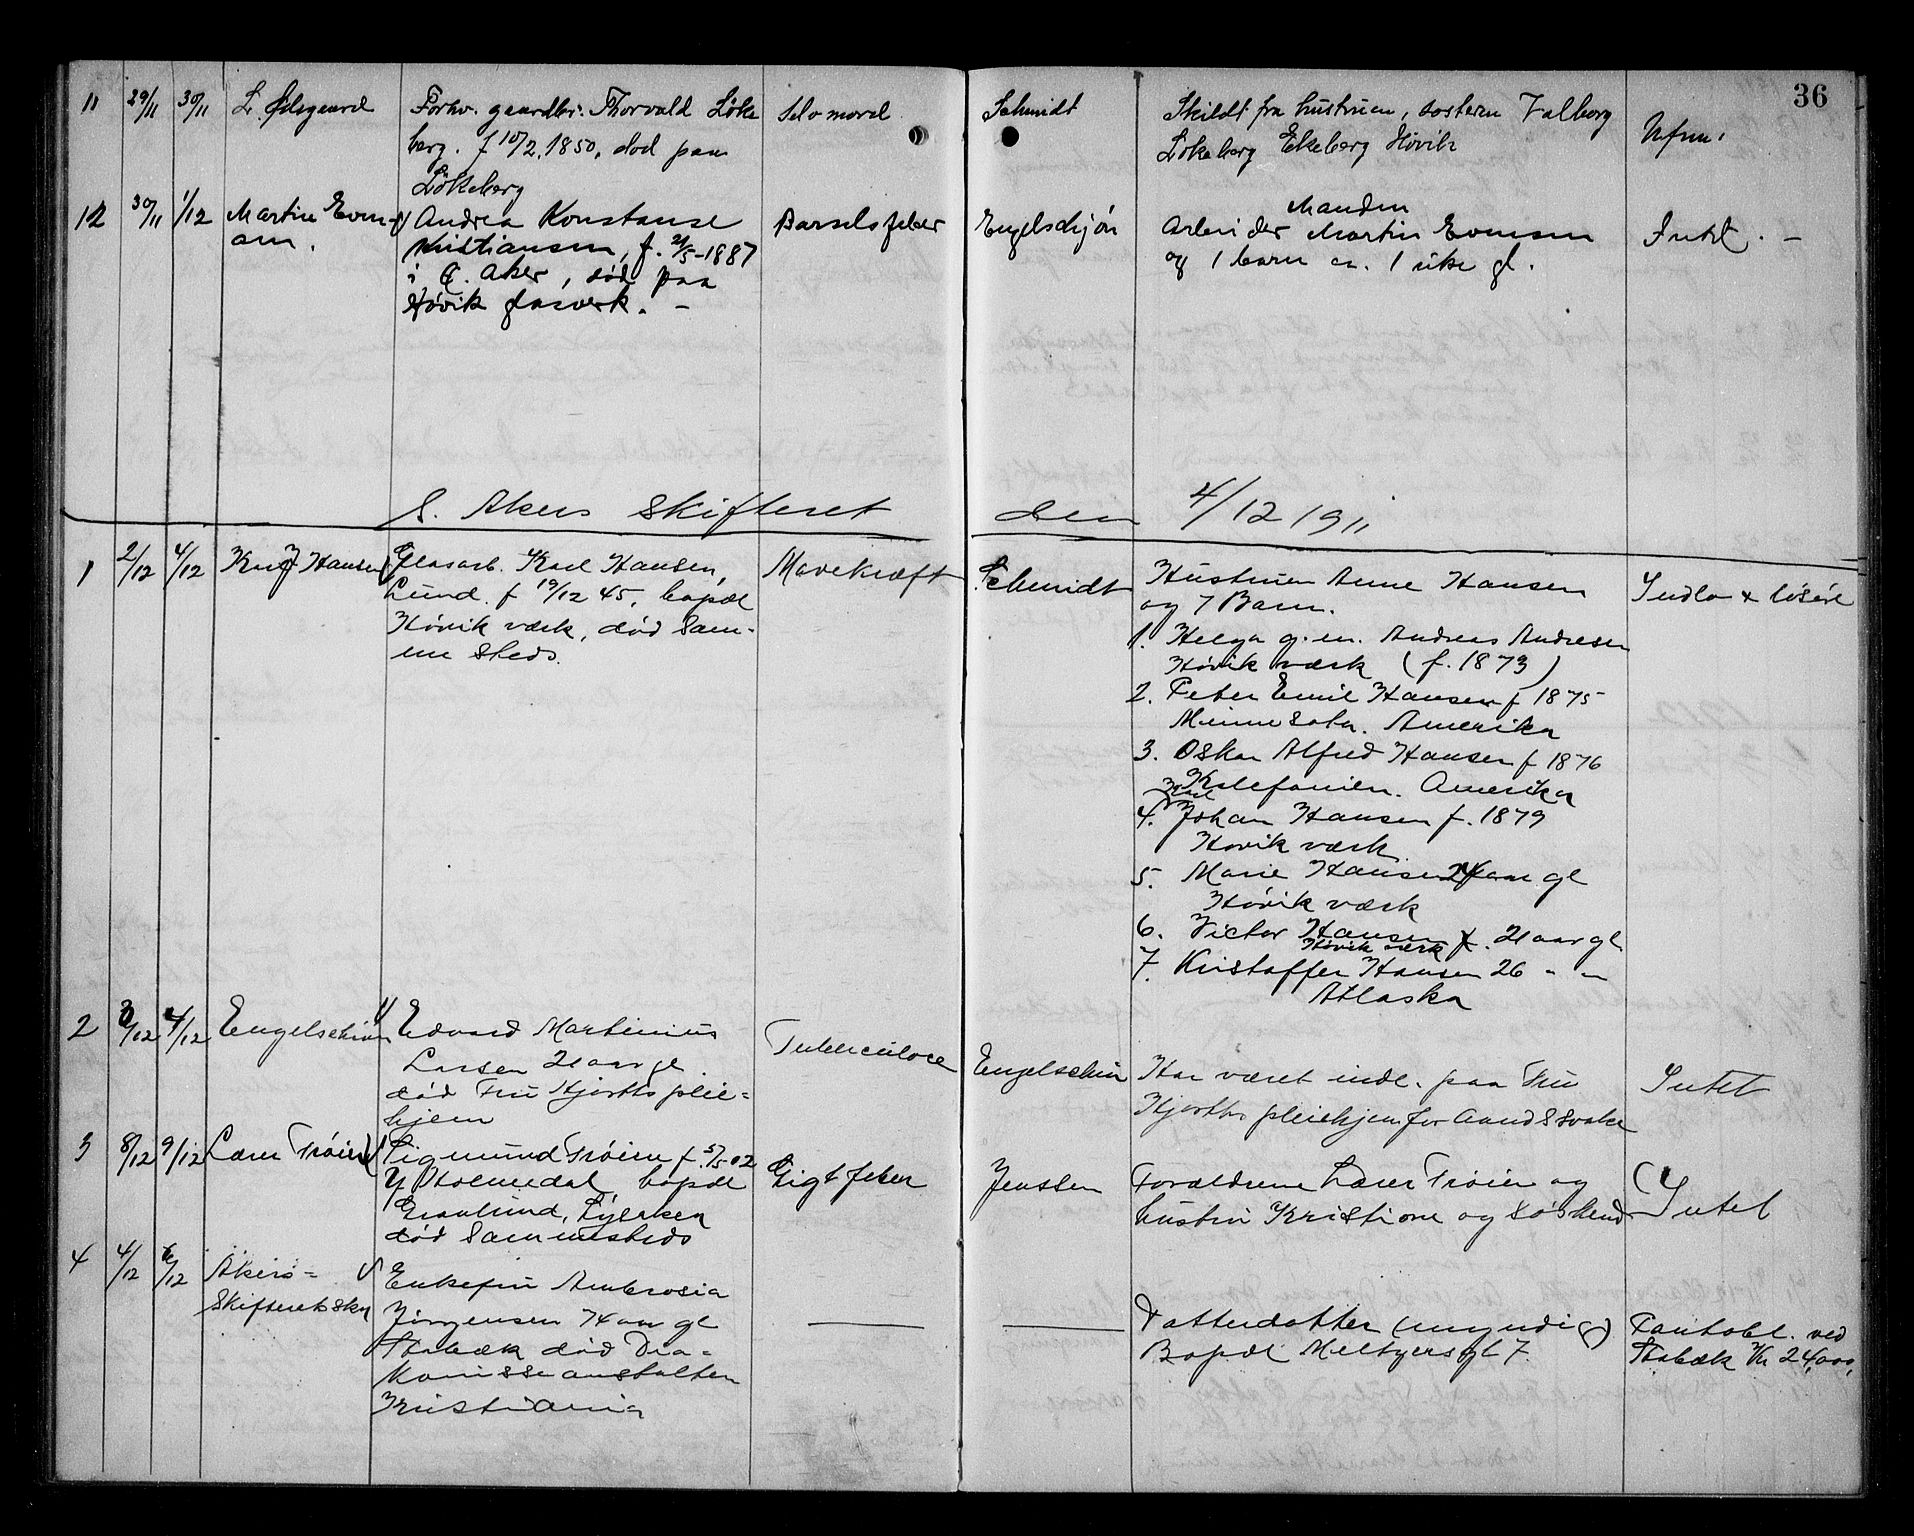 36
11 29/11 30/11 L. Ødegaard Forhv. gaardbr. Thorvald Løke Selvmord Schmidt Skildt fra hustruen, søsteren Valborg
berg. f 10/2. 1850, død paa Løkeberg Ekeberg Høvik
Løkeberg
12 30/11 1/12 Martin Even- Andrea Konstanse Barselsfeber Engelschjøn Manden
sen. Kristiansen, f. 21/5-1887 Arbeider Martin Evensen Intet. -
i Ø. Aker, død paa og 1 barn ca. 1 uke gl.
Høvik glasverk. -
S. Akers Skifteret den 4/12 1911
1 2/12 4/12 Karl J Hansen Glasarb. Karl Hansen, Mavekræft Schmidt Hustruen Anne Hansen Indbo + løsøre
Lund. f 19/12 45, bopæl og 7 Barn.
Høvik værk, død Sam-
me Steds.
1. Helga g. m. Andreas Andresen
Høvik værk (f. 1873)
2. Peter Emil Hansen f 1875
Minnesota. Amerika
3. Oskar Alfred Hansen f 1876
Kalefonien. Amerika
Karl
4. Johan Hansen f. 1879
Høvik værk
5. Marie Hansen 24 aar gl
Høvik værk
6. Victor Hansen f. 21 aar gl
Høvik værk
7. Kristoffer Hansen 26 - -
Atlaska
2 3/12 4/12 Engelschiøn Edvard Martinius Tuberculose Engelschiøn Har været indl. paa Fru Intet
Larsen 21 aar gl.
død Fru Hjorths pleie- Hjorths pleiehjem for Aandssvake
hjem
3 8/12 9/12 Lærer Trøien Sigmund Trøien f. 5/5 02 Gigtfeber Jenssen Forældrene Lærer Trøien og Intet
Y Holmedal bopæl hustru Kristiane og Søskend
Granlund, Lysaker
død Sammesteds
4 4/12 6/12 Akers- Enkefru Ambrosia
Skifteretsskr Jørgensen 74 aar gl Datterdatter (umyndig) Fantobl. ved
Stabæk død Dia- Bopæl Meltzersgt 7. Stabæk Kr 24,000,
konisseanstalten
Kristiania